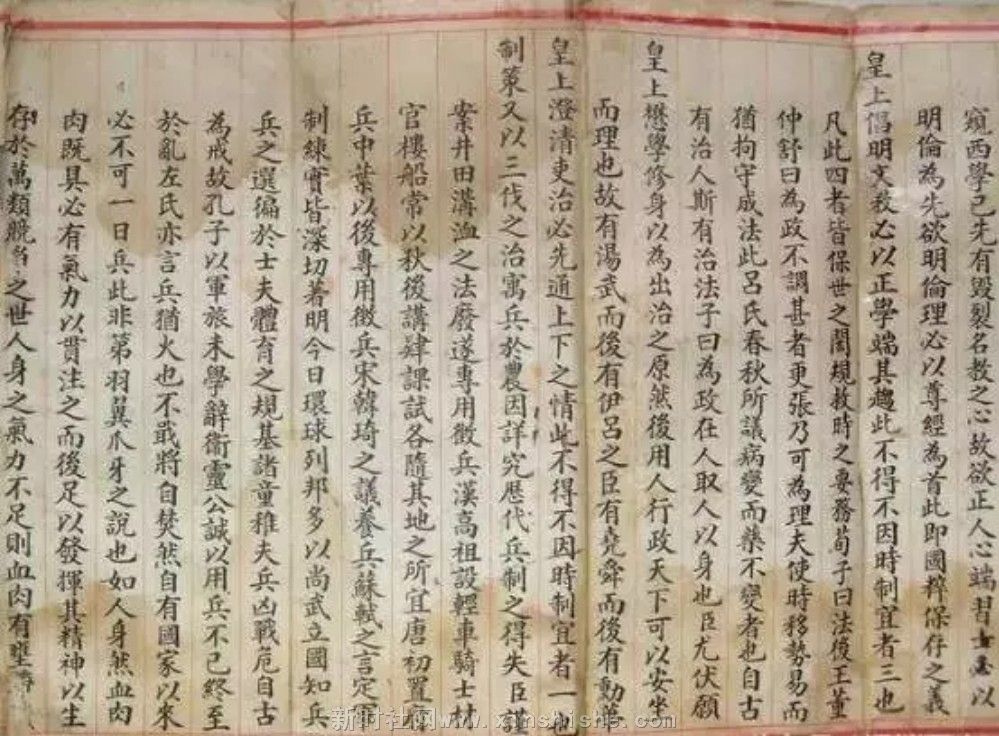 窺西學已先有毀裂名教之心故欲正人心端習必以
明倫為先欲明倫理必以尊經為首此即國粹保存之義
皇上倡明文教必以正學端其趨此不得不因時制宜者三也
凡此四者皆保世之閎規救時之要務荀子曰法後王董
仲舒曰為政不調甚者更張乃可為理夫使時移勢易而
猶拘守成法此呂氏春秋所議病變而藥不變者也自古
有治人斯有治法子曰為政在人取人以身也臣尤伏願
皇上懋學修身以為出治之原然後用人行政天下可以安坐
而理也故有湯武而後有伊呂之臣有堯舜而後有勳華
皇上澄清吏治必先通上下之情此不得不因時制宜者一也
制策又以三代之治寓兵於農因詳究歷代兵制之得失臣謹
案井田溝洫之法廢遂專用徵兵漢高祖設輕車騎士材
官樓船常以秋後講肄課試各隨其地之所宜唐初置府
兵中葉以後專用徵兵宋韓琦之議養兵蘇軾之言定軍
制練實皆深切著明今日環球列邦多以尚武立國知兵
兵之選徧於士夫體育之規基諸童稚夫兵凶戰危自古
為戒故孔子以軍旅未學辭衛靈公誠以用兵不已終至
於亂左氏亦言兵猶火也不戢將自焚然自有國家以來
必不可一日兵此非第羽翼爪牙之說也如人身然血肉
肉既具必有氣力以貫注之而後足以發揮其精神以生
存於萬類競之世人身之氣力不足則血肉有壅
新时社网www.xinshishe.com